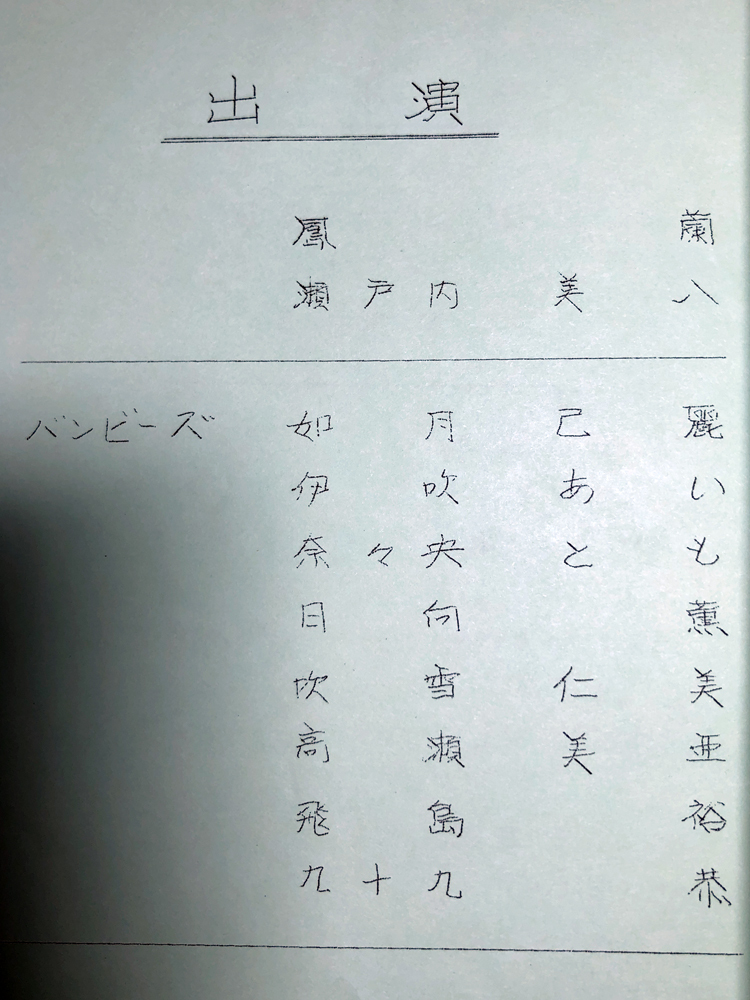 出演
鳳 蘭
瀬戸内 美八
バンビーズ 如月 己麗
伊吹 あい
奈々央 とも
日向 薫
吹雪 仁美
高瀬 美亜
飛島 裕
九十九 恭